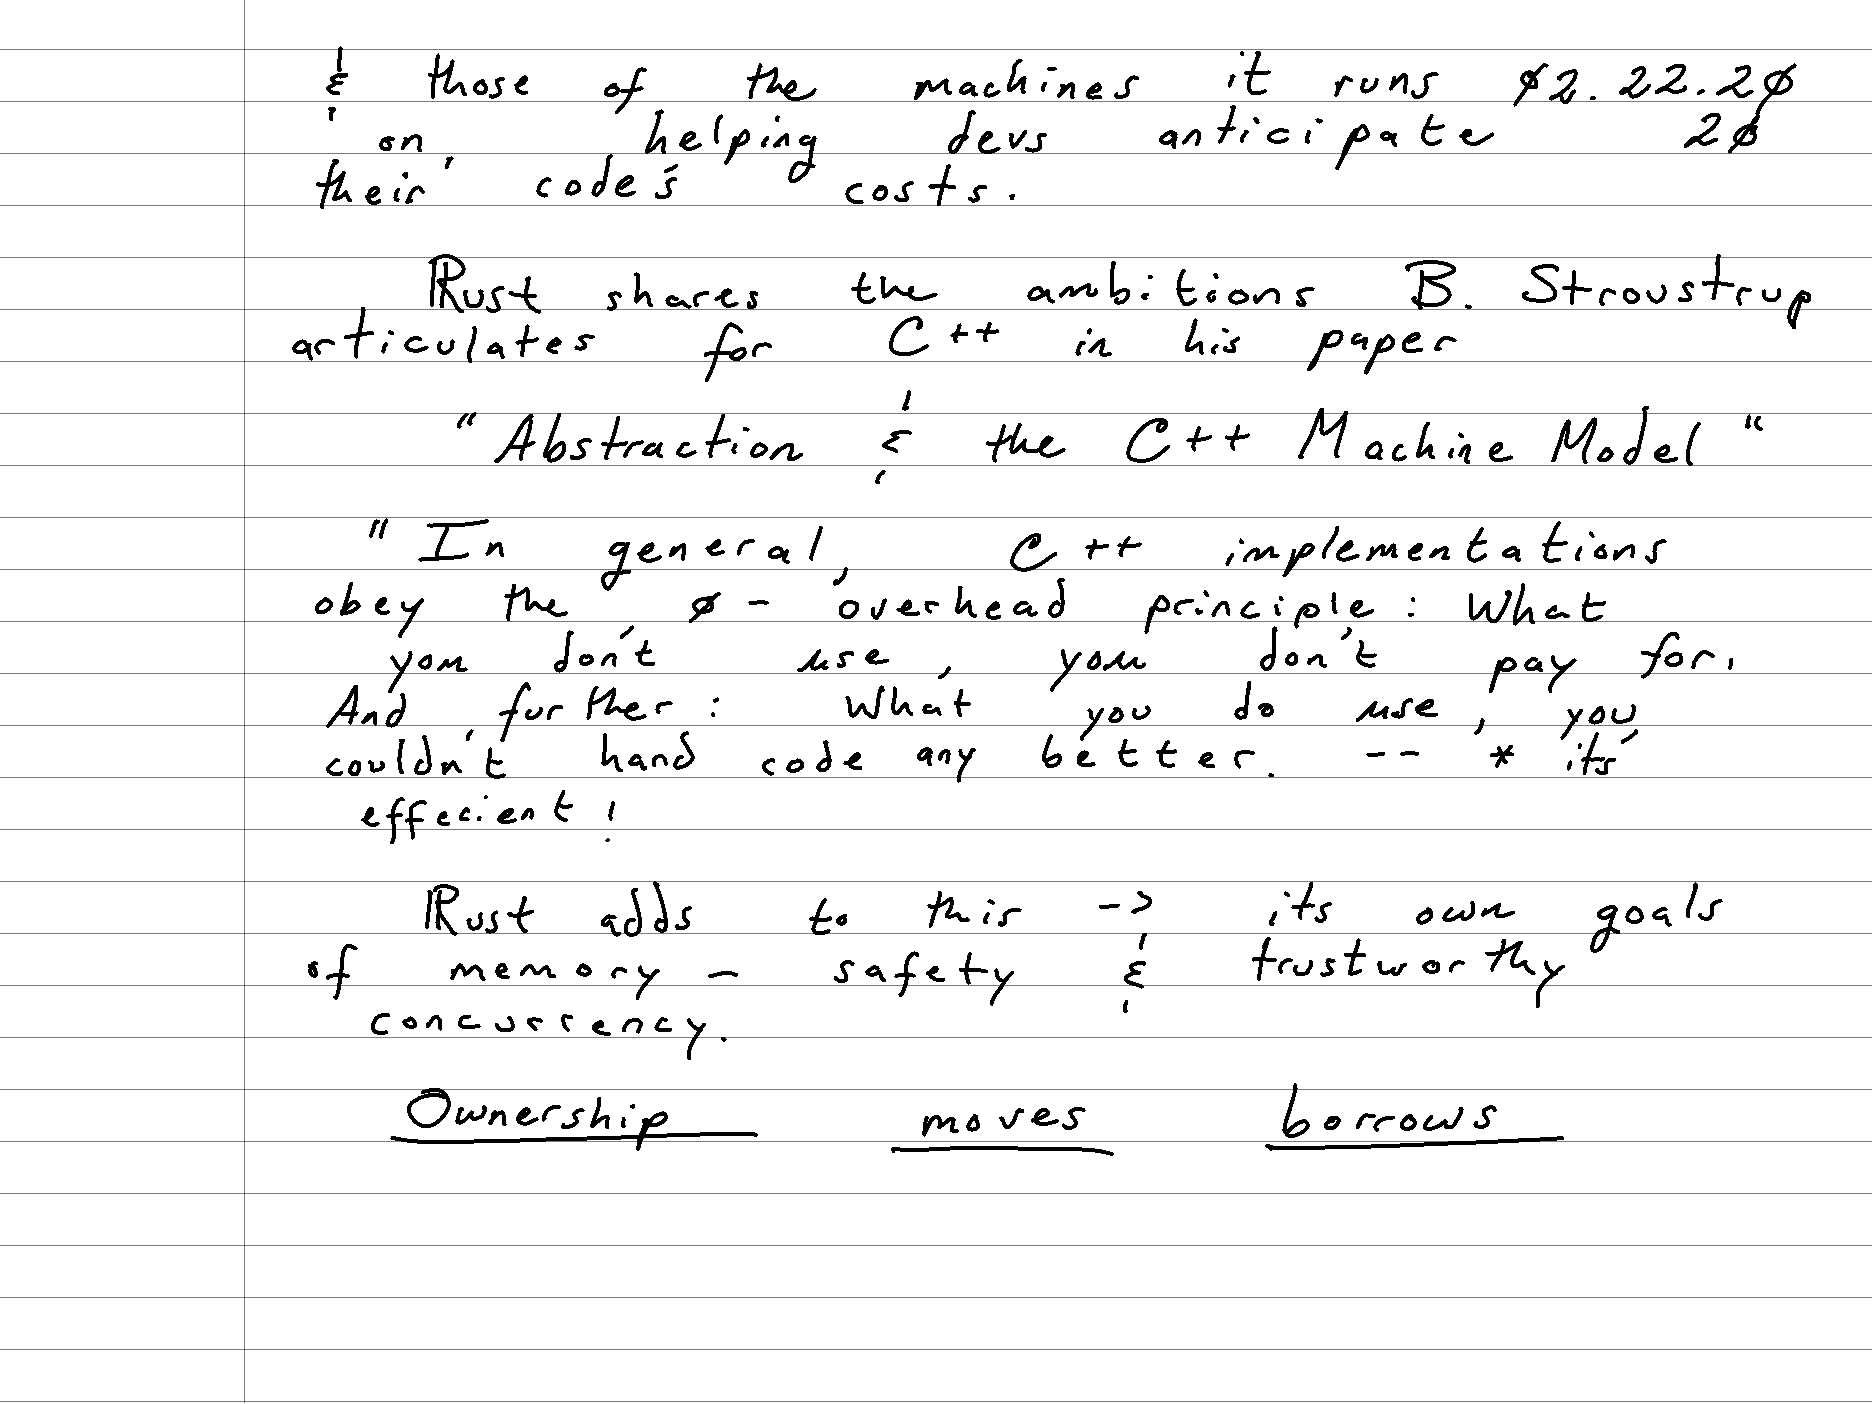 & those of the machines it runs 02.22.20
on, helping devs anticipate 20
their code's costs.
Rust shares the ambitions B. Stroustrup
articulates for C++ in his paper
"Abstraction & the C++ Machine Model"
"In general, C++ implementations
obey the 0-overhead principle: What
you don't use, you don't pay for.
And, further: What you do use, you
couldn't hand code any better. -- * it's
effecient!
Rust adds to this -> its own goals
of memory-safety & trustworthy
concurrency.
Ownership moves borrows